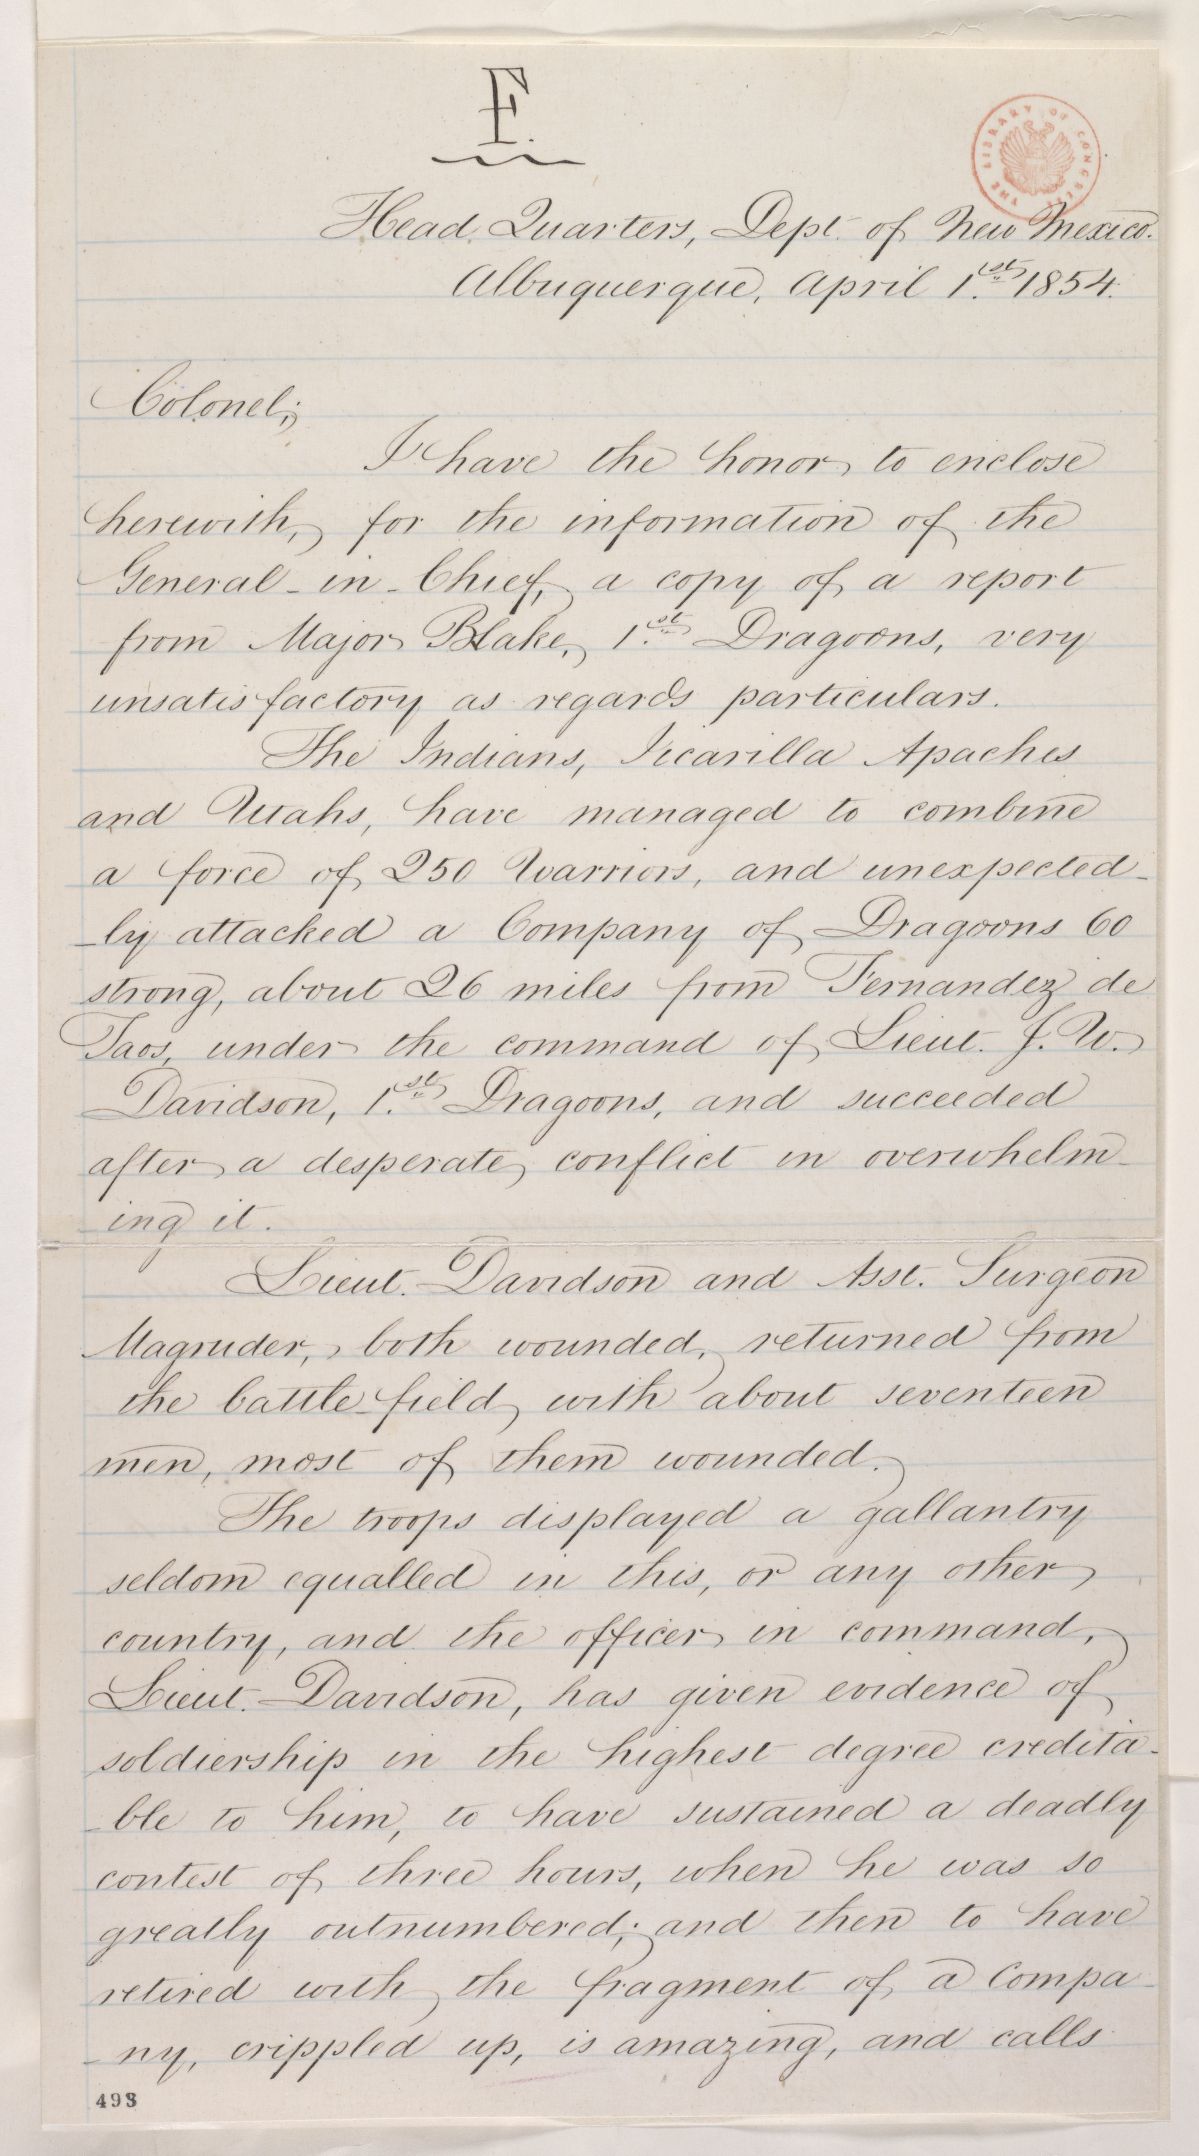 F.
THE LIBRARY OF CONGRESS
Head Quarters, Dept. of New Mexico.
Albuquerque, April 1.st 1854.
Colonel;
I have the honor to enclose
herewith, for the information of the
General-in-Chief, a copy of a report
from Major Blake, 1.st Dragoons, very
unsatisfactory as regards particulars.
The Indians, Jicarilla Apaches
and Utahs, have managed to combine
a force of 250 Warriors, and unexpected-
-ly attacked a Company of Dragoons 60
strong, about 26 miles from Fernandez de
Taos, under the command of Lieut. J. W.
Davidson, 1.st Dragoons, and succeeded
after a desperate conflict in overwhelm-
ing it.
Lieut. Davidson and Asst. Surgeon
Magruder, both wounded, returned from
the battle-field, with about seventeen
men, most of them wounded.
The troops displayed a gallantry
seldom equalled in this, or any other
country, and the officer in command,
Lieut. Davidson, has given evidence of
soldiership in the highest degree credita-
-ble to him, to have sustained a deadly
contest of three hours, when he was so
greatly outnumbered; and then to have
retired with the fragment of a Compa-
-ny, crippled up, is amazing, and calls
493